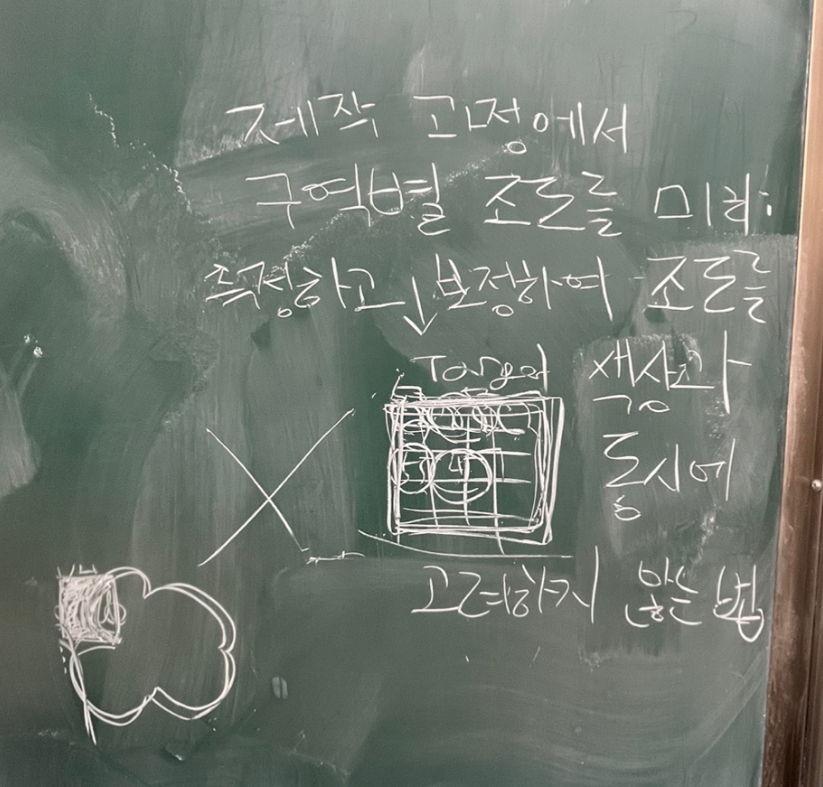 제작 과정에서
구역별 조도를 미리
측정하고 보정하여 조도를
Target 색상과
동시에
고려하지 않는 법